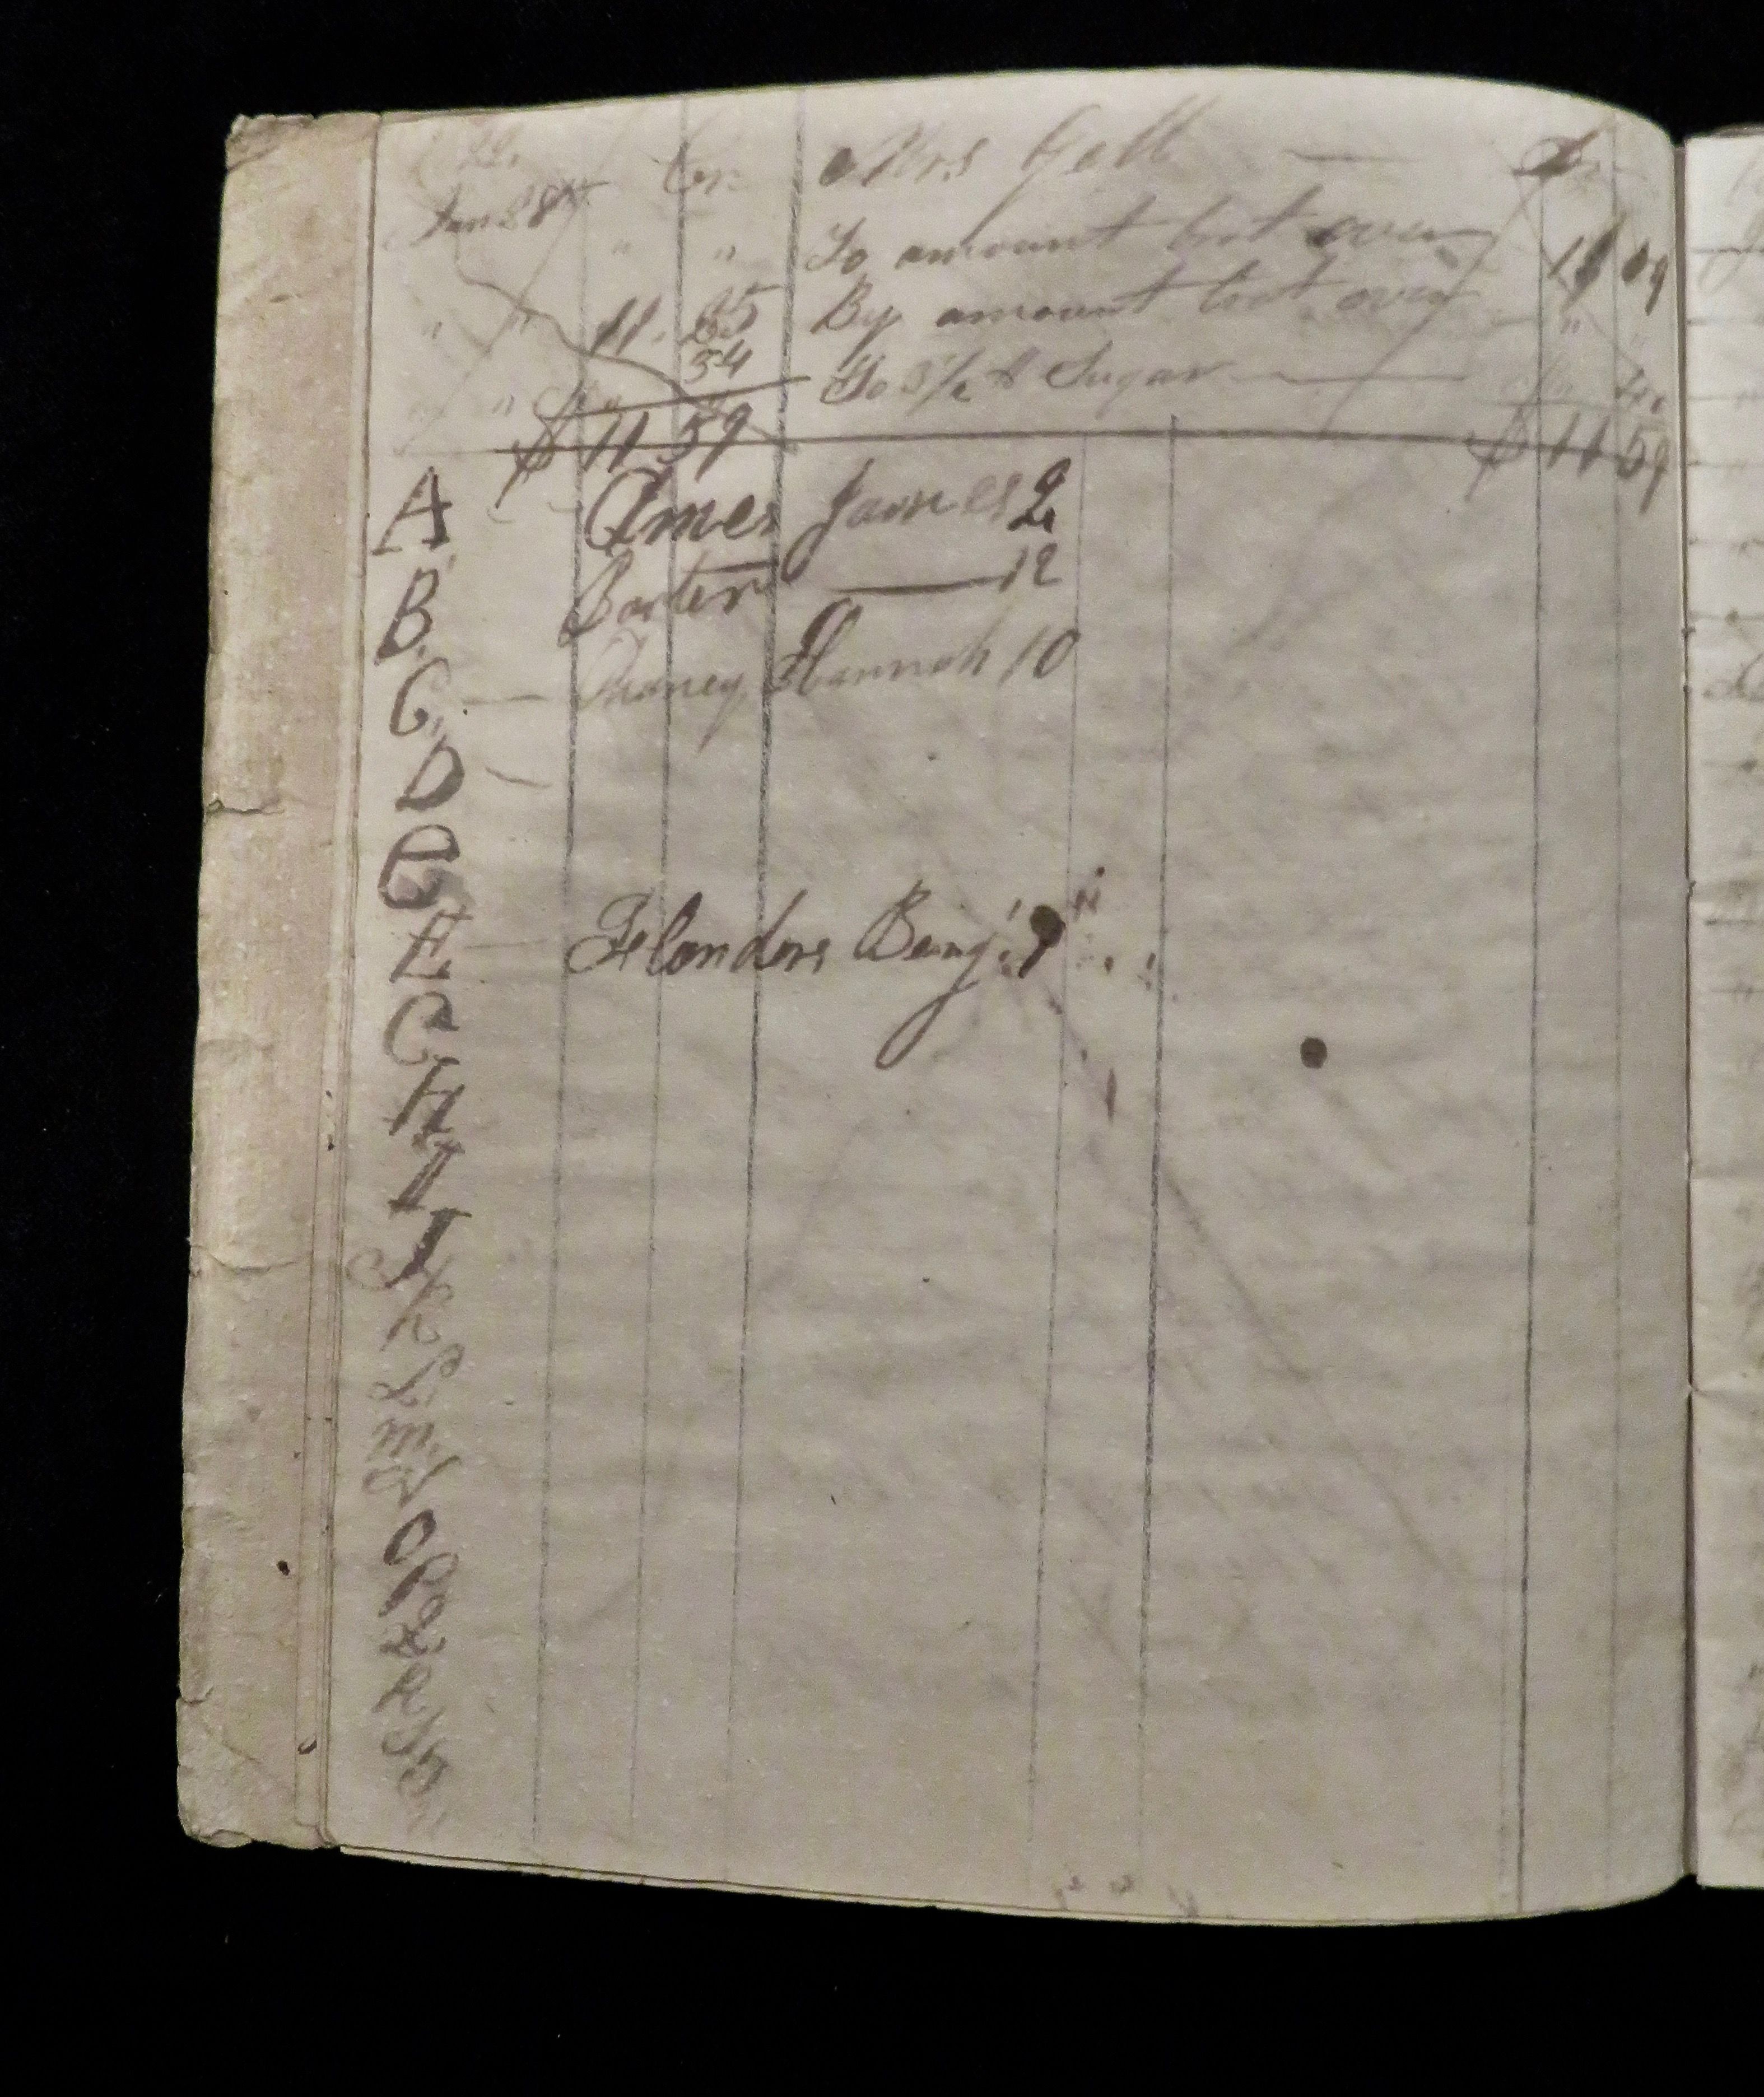 Cr. Mrs Gell Dr
Jan 28
" " To amount brot over 11 09
" " 11. 25 By amount brot over "
34
" " " To 3 1/2 lb Sugar
$ 11 59 $ 11 59
A Ames James 2
B. Barter 12
C. Chaney Hannah 10
D
E
F Flanders Benj. 9
G
H
I
J
K
L
M.
N
O
P
Q
R
S